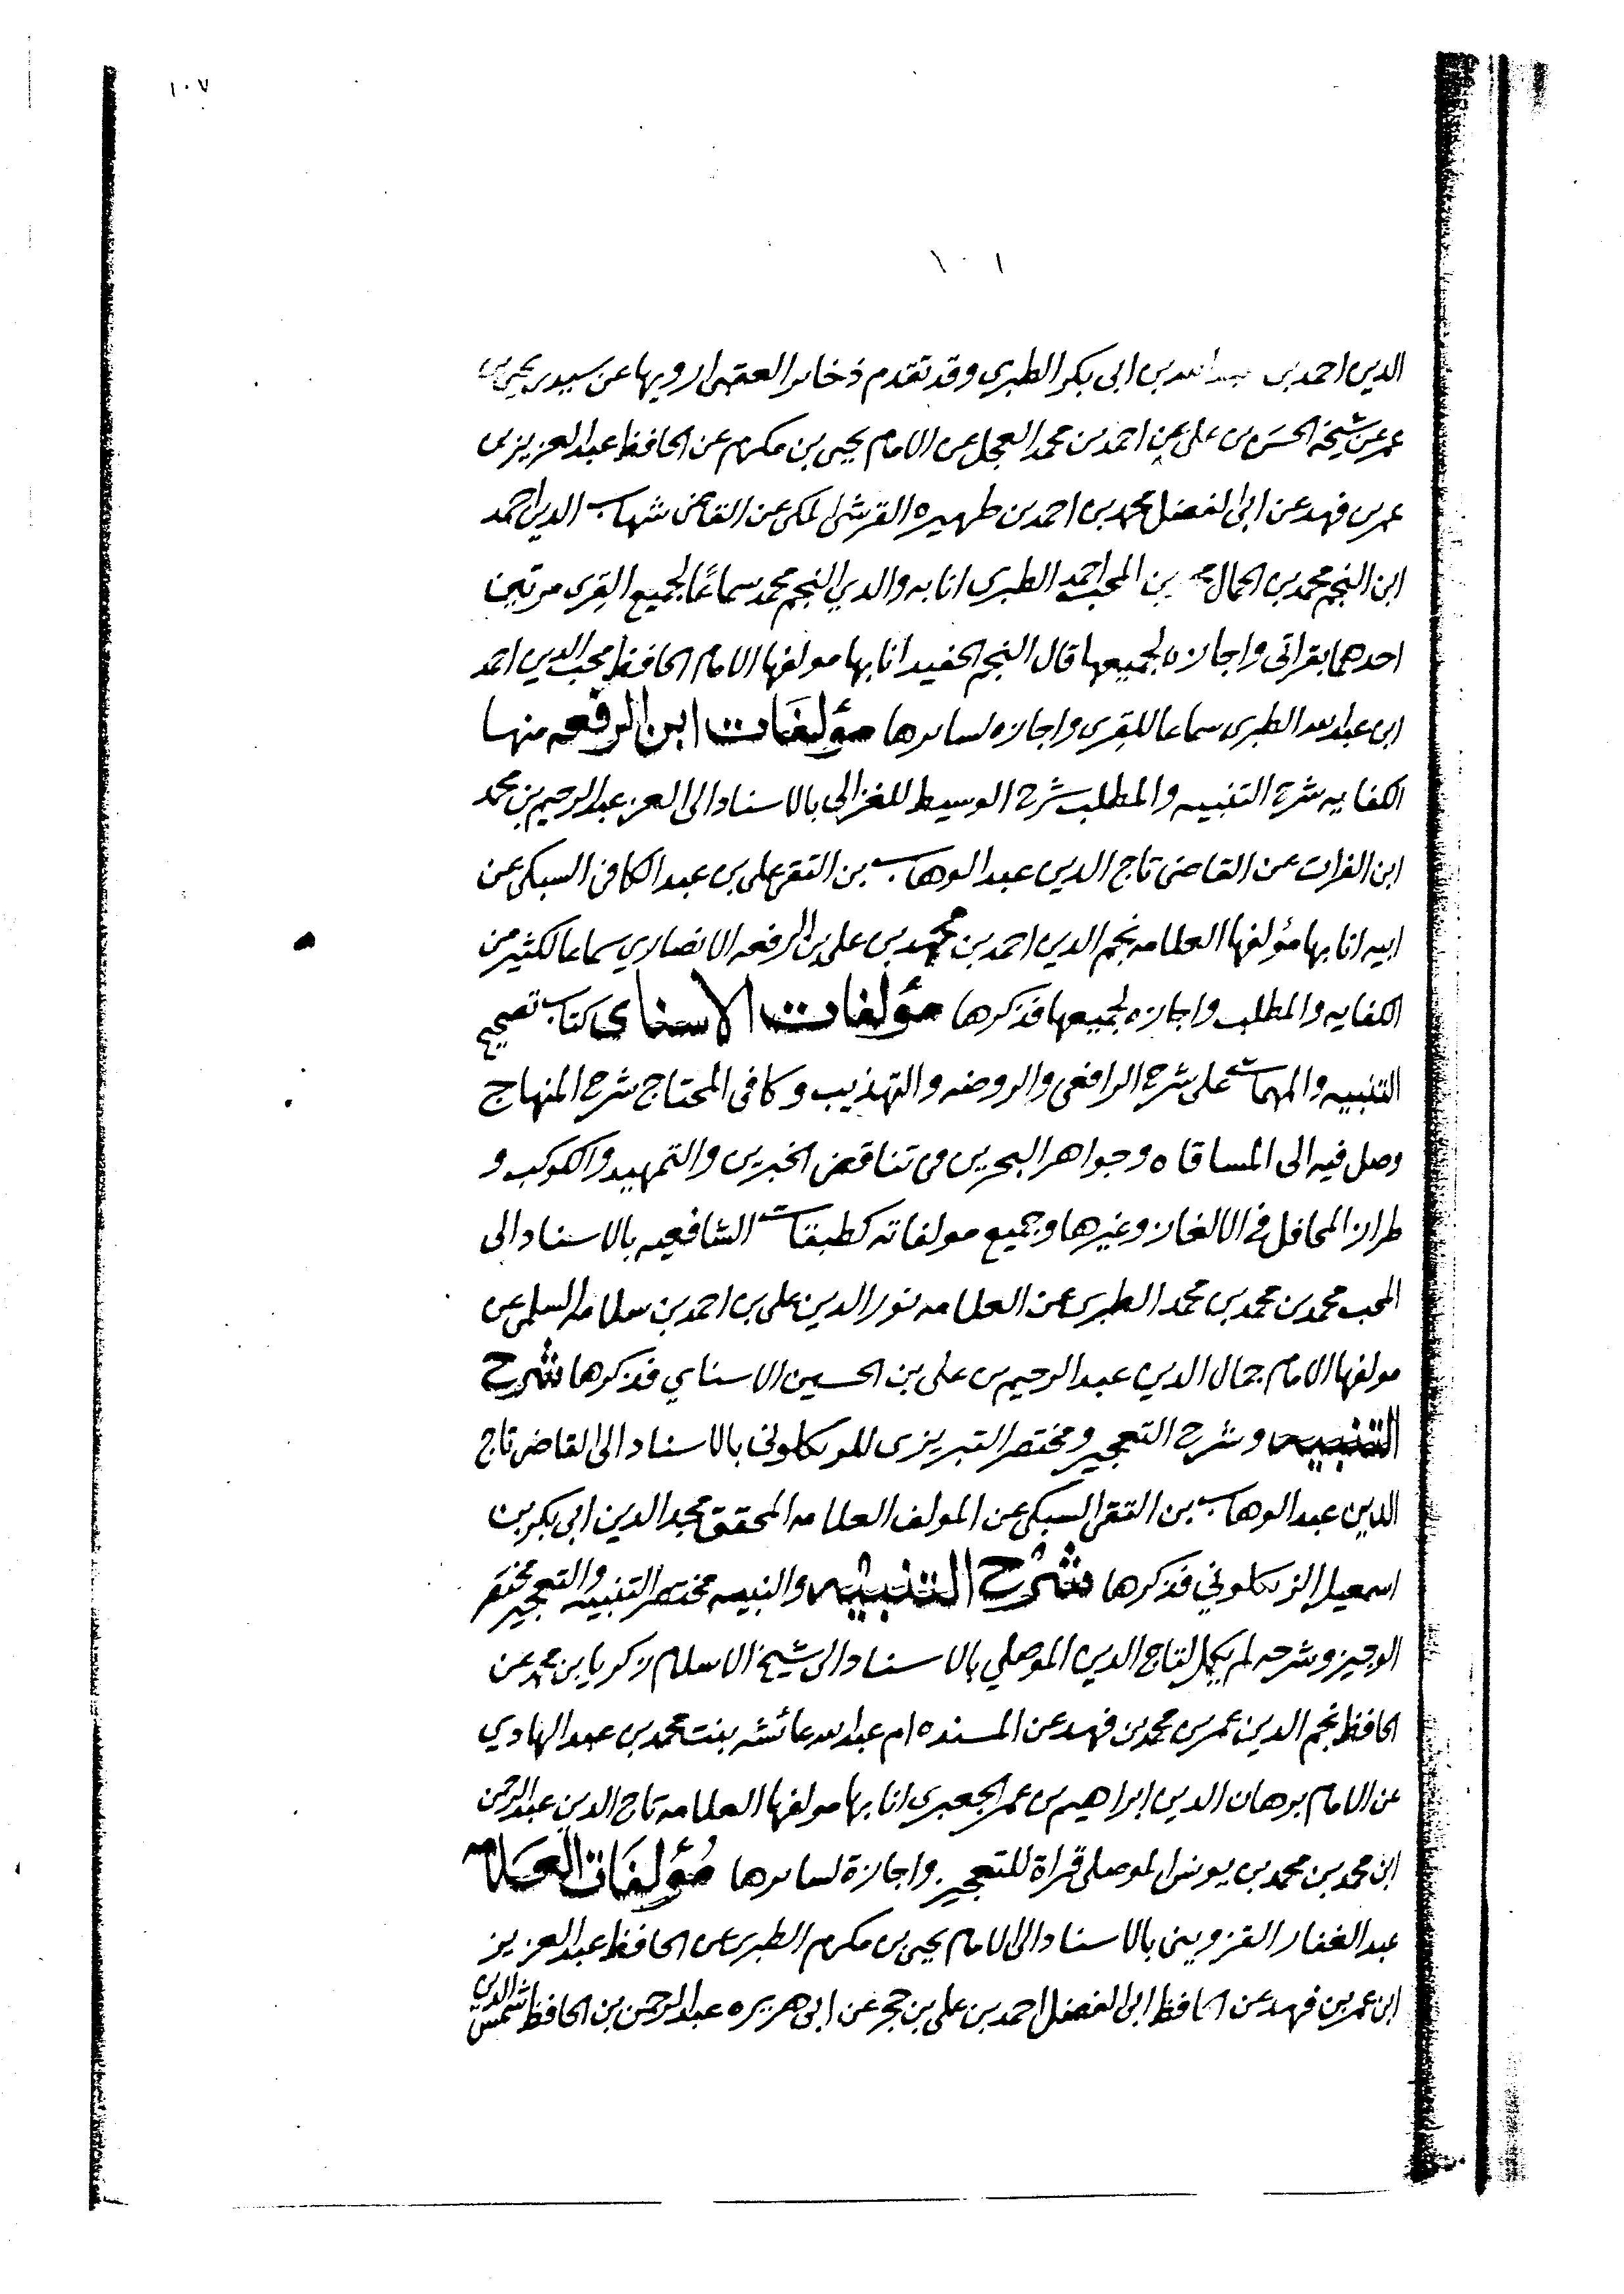 ١٠٧
١٠١
الدين احمد بن عبد الله بن ابى بكر الطبرى وقد تقدم ذخائر العقبى ارويها عن سيدى يحيى بن
عمر عن شيخه الحسن بن على عن احمد بن محمد العجل عن الامام يحيى بن مكرم عن الحافظ عبد العزيز بن
عمر بن فهد عن ابى الفضل محمد بن احمد بن ظهيره القرشى المكى عن القاضى شهاب الدين احمد
ابن النجم محمد بن الجمال محمد بن المحب احمد الطبرى انا به والدي النجم محمد سماعًا لجميع القرى مرتين
احدهما بقراتى واجازه لجميعها قال النجم الحفيد انا بها مولفها الامام الحافظ محب الدين احمد
ابن عبد الله الطبرى سماعا للقرى واجازه لسايرها مؤلفات ابن الرفعه منها
الكفايه شرح التنبيه والمطلب شرح الوسيط للغزالى بالاسناد الى العز عبد الرحيم بن محمد
ابن الفرات عن القاضى تاج الدين عبد الوهاب بن التقى على بن عبد الكافى السبكى عن
ابيه انا بها مؤلفها العلامه نجم الدين احمد بن محمد بن على بن الرفعه الانصاري سماعا لكثير من
الكفايه والمطلب واجازه لجميعها فذكرها مؤلفات الاسناى كتاب تصحيح
التنبيه والمهمات على شرح الرافعى والروضه والتهذيب وكافى المحتاج شرح المنهاج
وصل فيه الى المساقاه وجواهر البحرين فى تناقض الخبرين والتمهيد والكوكب و
طراز المحافل في الالغاز وغيرها وجميع مولفاته كطبقات الشافعيه بالاسناد الى
المحب محمد بن محمد بن محمد الطبرى عن العلامه نور الدين على بن احمد بن سلامه السلمى عن
مولفها الامام جمال الدين عبد الرحيم بن على بن الحسين الاسناي فذكرها شرح
التنبيه وشرح التعجيز ومختصر التبريزى للزنكلونى بالاسناد الى القاضى تاج
الدين عبد الوهاب بن التقى السبكى عن المولف العلامه المحقق مجد الدين ابى بكر بن
اسمعيل الزنكلوني فذكرها شرح التنبيه والنبيه مختصر التنبيه والتعجيز مختصر
الوجيز وشرحه لم يكمل لتاج الدين الموصلي بالاسناد الى شيخ الاسلام زكريا بن محمد عن
الحافظ نجم الدين عمر بن محمد بن فهد عن المسنده ام عبد الله عائشه بنت محمد بن عبد الهادي
عن الامام برهان الدين ابراهيم بن عمر الجعبرى انا بها مولفها العلامه تاج الدين عبد الرحمن
ابن محمد بن محمد بن يونس الموصلى قراة للتعجيز واجازة لسايرها مؤلفات العلامه
عبد الغفار القزوينى بالاسناد الى الامام يحيى بن مكرم الطبرى عن الحافظ عبد العزيز
ابن عمر بن فهد عن الحافظ ابى الفضل احمد بن على بن حجر عن ابى هريره عبد الرحمن بن الحافظ شمس الدين